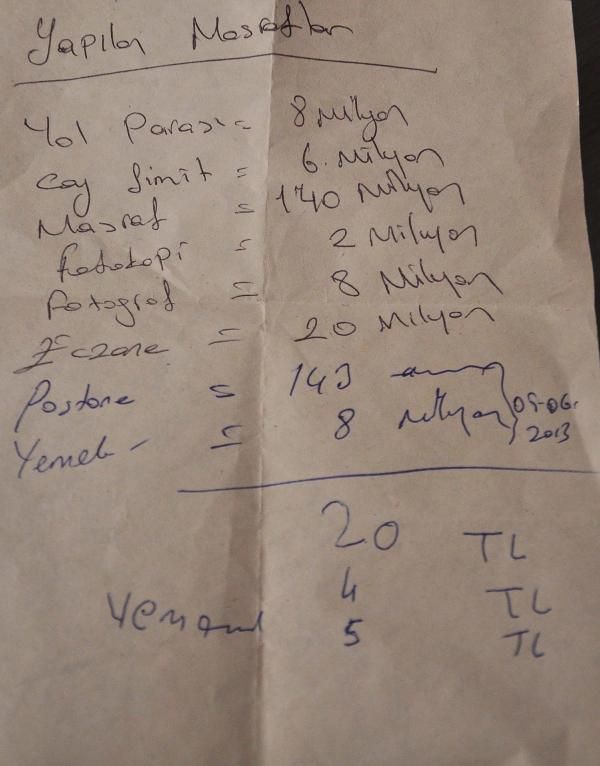 Yapılan Masraflar
Yol Parası = 8 Milyon
Çay Simit = 6. Milyon
Masraf = 140 Milyon
Fotokopi = 2 Milyon
Fotograf = 8 Milyon
Eczane = 20 Milyon
Postane = 143
Yemek = 8 Milyon
2013
20 TL
4 TL
5 TL